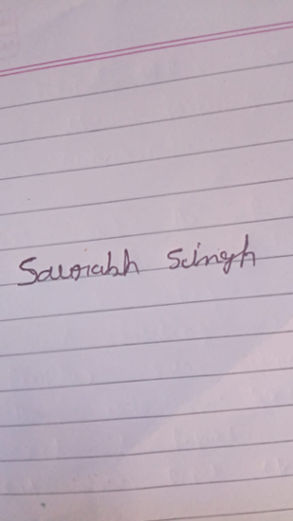 Saurabh Singh